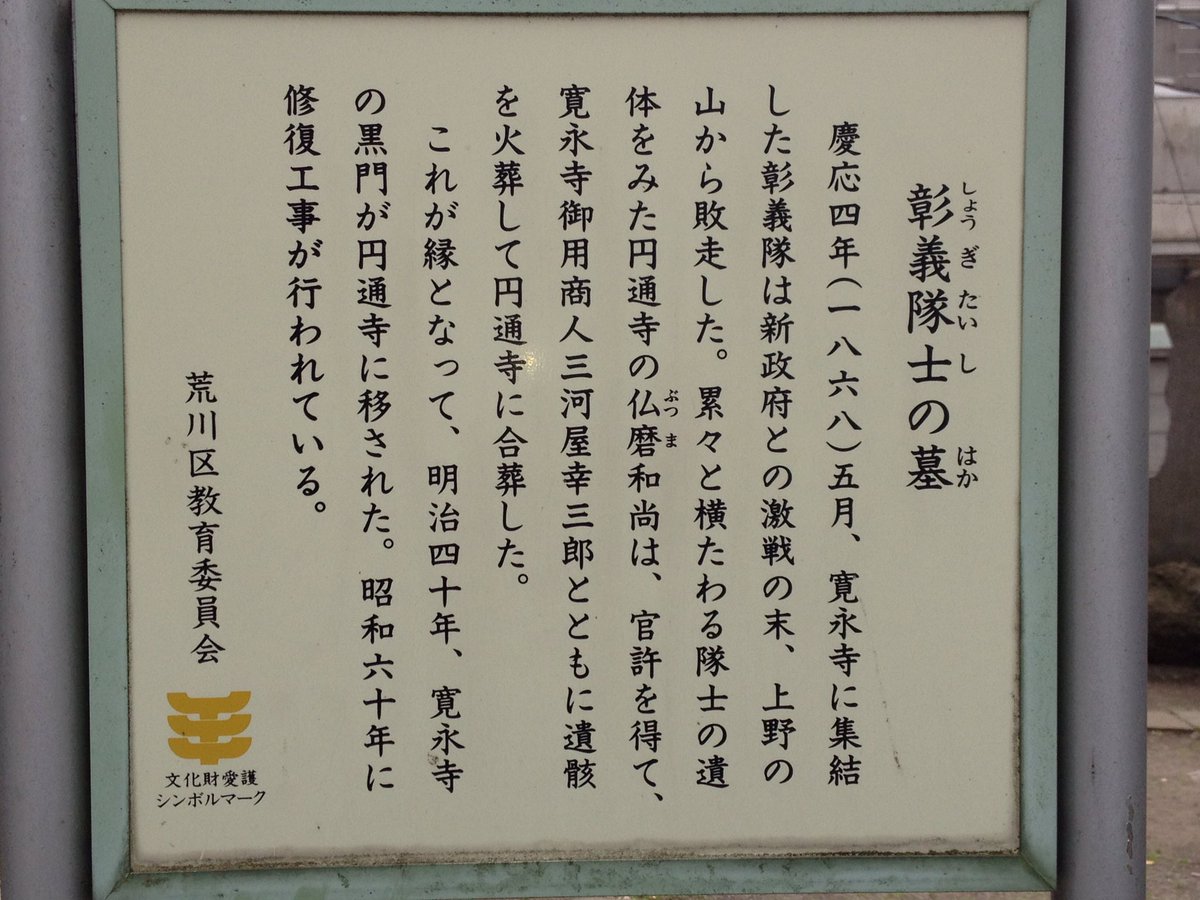 彰義隊士の墓
しょうぎたいし はか
慶応四年(一八六八)五月、寛永寺に集結
した彰義隊は新政府との激戦の末、上野の
山から敗走した。累々と横たわる隊士の遺
体をみた円通寺の仏磨和尚は、官許を得て、
ぶつま
寛永寺御用商人三河屋幸三郎とともに遺骸
を火葬して円通寺に合葬した。
これが縁となって、明治四十年、寛永寺
の黒門が円通寺に移された。昭和六十年に
修復工事が行われている。
荒川区教育委員会
文化財愛護
シンボルマーク